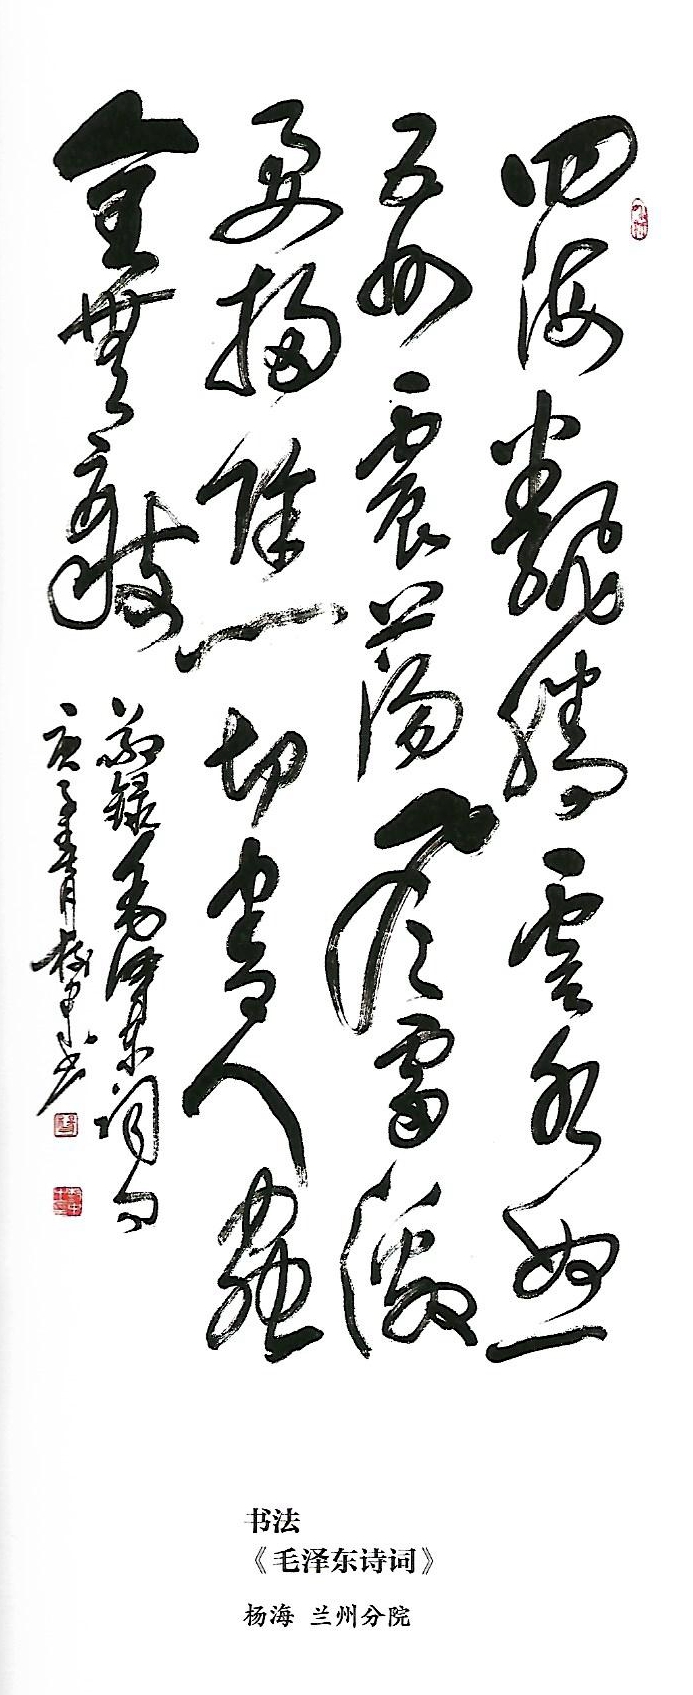 四海翻腾云水怒
五州震荡风雷激
要扫除一切害人虫
全无敌
敬录毛泽东词句
庚子春月
书法
《毛泽东诗词》
杨海 兰州分院